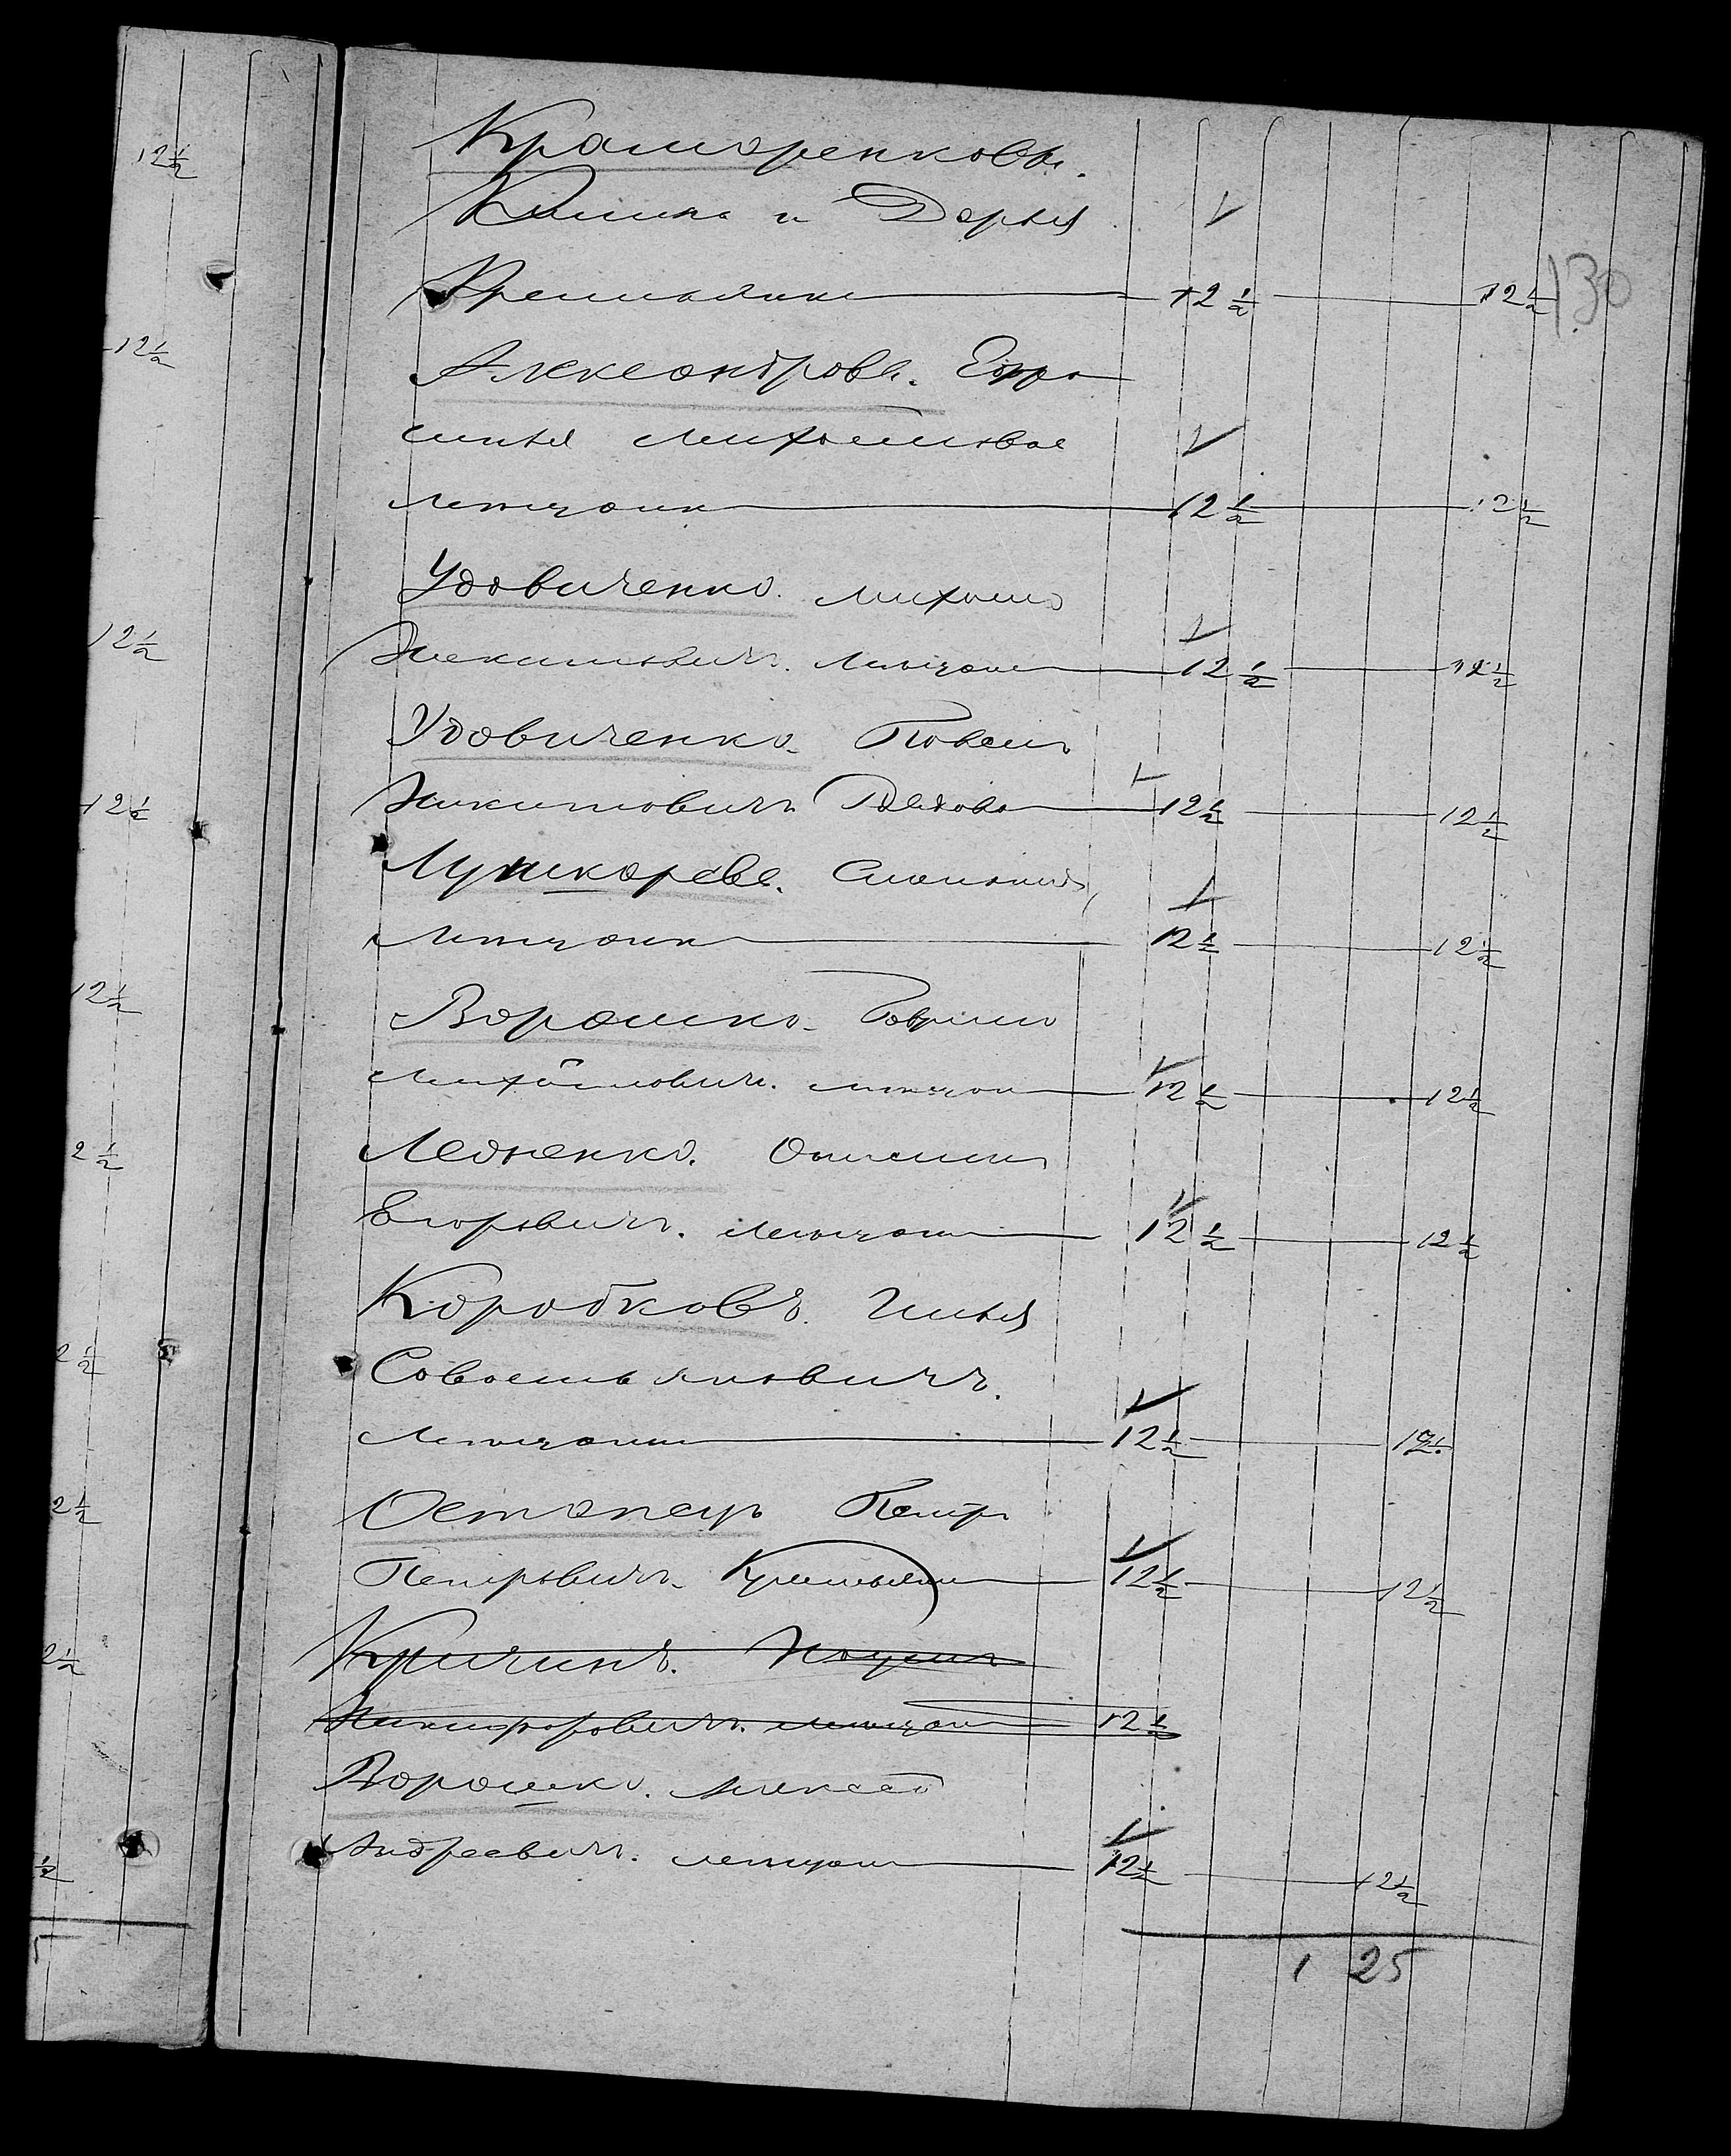 12½
12½
12½
12½
12½
2½
2½
2½
2½
½
Крамаренковы.
и Дарья
Крестьяне 12½ 12½
130
Александрова. Евфро
синья Михайловна
мещанка 12½ 12½
Удовиченко. Михаил
мещан 12½ 12½
Удовиченко. Павелъ
Никитовичъ 12½ 12½
Лушкарева.
мещанка 12½ 12½
Ворошко. Гаврило
Михайловичъ. мещан 12½ 12½
Ледненко.
Егоровичъ. мещан 12½ 12½
Коробковъ. Илья
Савостьяновичъ.
мещанин 12½ 12½
Остапецъ Петръ
Петровичъ. Крестьянин 12½ 12½
Кричинъ. Наумъ
Никифоровичъ. мещан 12½
Ворошко. Алексей
Андреевичъ. мещан 12½ 12½
1 25